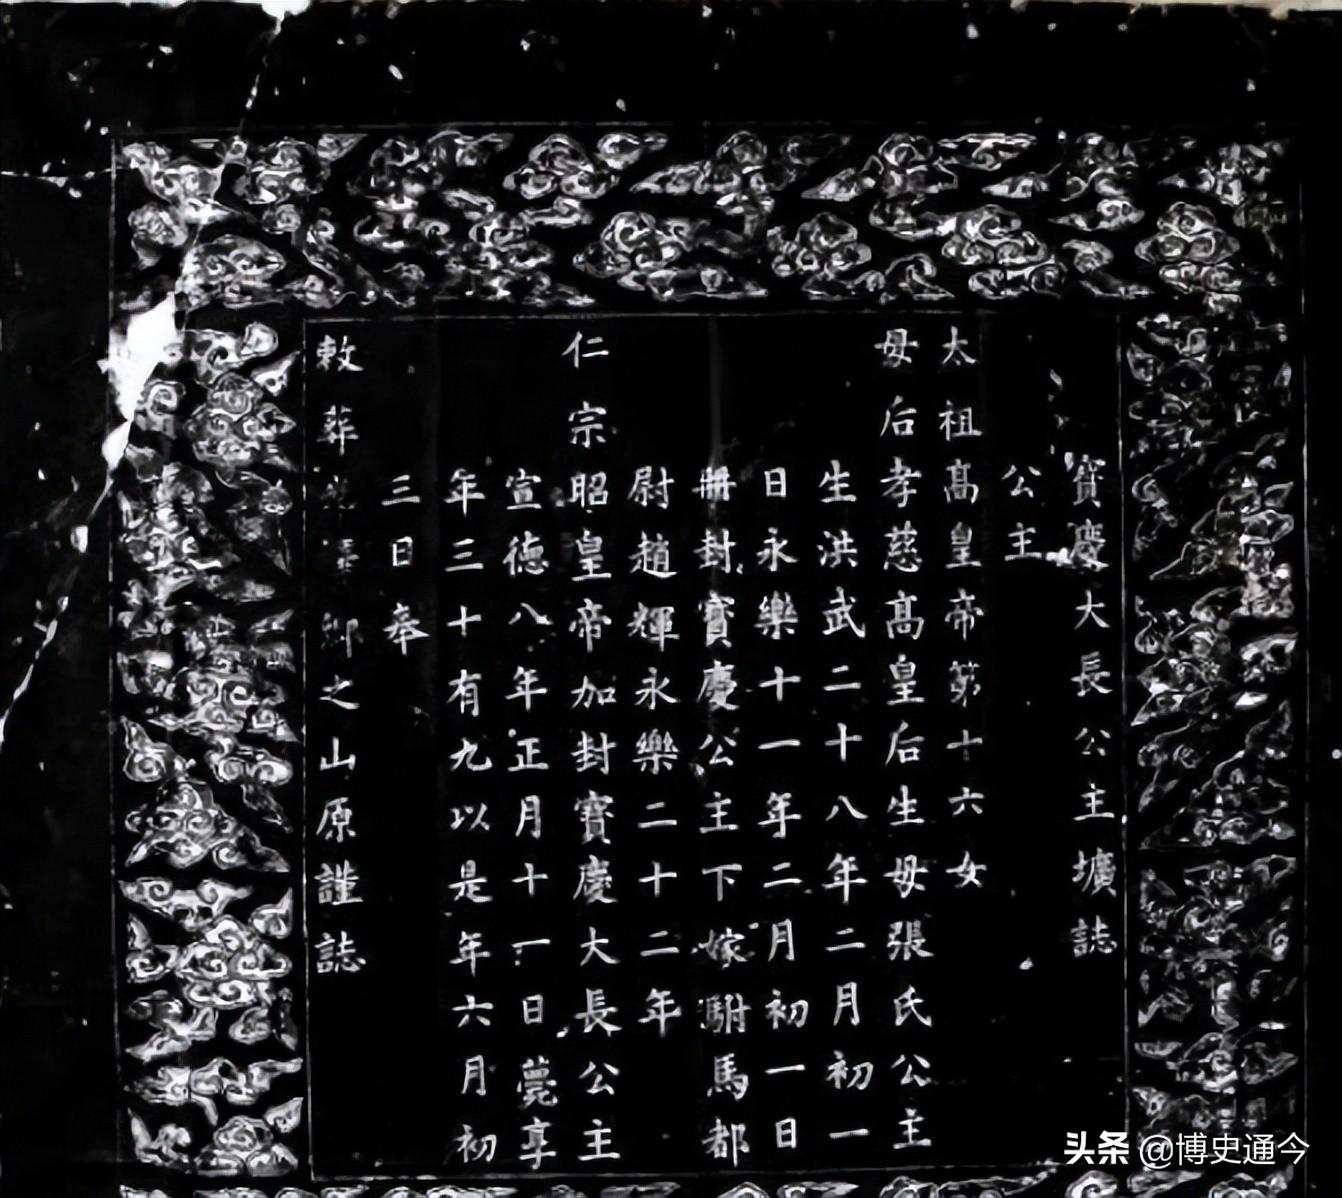 寶慶大長公主壙誌
公主
太祖高皇帝第十六女
母后孝慈高皇后生母張氏公主
生洪武二十八年二月初一
日永樂十一年二月初一日
冊封寶慶公主下嫁駙馬都
尉趙輝永樂二十二年
仁宗昭皇帝加封寶慶大長公主
宣德八年正月十一日薨享
年三十有九以是年六月初
三日奉
敕葬鄉之山原謹誌
头条 @博史通今